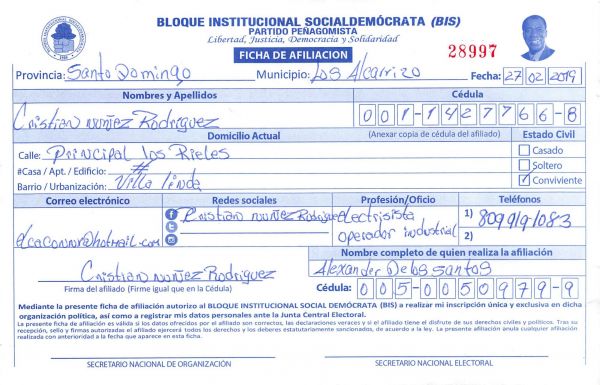 BLOQUE INSTITUCIONAL SOCIALDEMÓCRATA (BIS)
PARTIDO PEÑAGOMISTA
Libertad, Justicia, Democracia y Solidaridad
FICHA DE AFILIACION
28997
Provincia: Santo Domingo Municipio: Los Alcarrizo Fecha: 27 02 2019
Nombres y Apellidos Cédula
Cristian nuñez Rodriguez 001-1427766-8
Domicilio Actual (Anexar copia de cédula del afiliado) Estado Civil
Calle: Principal los Rieles Casado
#Casa / Apt. / Edificio: # Soltero
Barrio / Urbanización: Villa linda Conviviente
Correo electrónico Redes sociales Profesión/Oficio Teléfonos
Cristian nuñez Rodriguez electrisista 1) 809 919-1083
operador industrial 2)
@hotmail.com
Nombre completo de quien realiza la afiliación
Cristian nuñez Rodriguez Alexander De los santos
Firma del afiliado (Firme igual que en la Cédula) Cédula: 005-0050979-9
Mediante la presente ficha de afiliación autorizo al BLOQUE INSTITUCIONAL SOCIAL DEMÓCRATA (BIS) a realizar mi inscripción única y exclusiva en dicha
organización política, así como a registrar mis datos personales ante la Junta Central Electoral.
La presente ficha de afiliación es válida si los datos ofrecidos por el afiliado son correctos, las declaraciones veraces y si el afiliado tiene el disfrute de sus derechos civiles y políticos. Tras su
recepción, sello y firmas autorizadas el afiliado ejercerá todos los derechos y los deberes estatutariamente sancionados, de acuerdo a la ley. La presente afiliación anula cualquier afiliación
realizada con anterioridad a la fecha que aparece en esta ficha.
SECRETARIO NACIONAL DE ORGANIZACIÓN SECRETARIO NACIONAL ELECTORAL